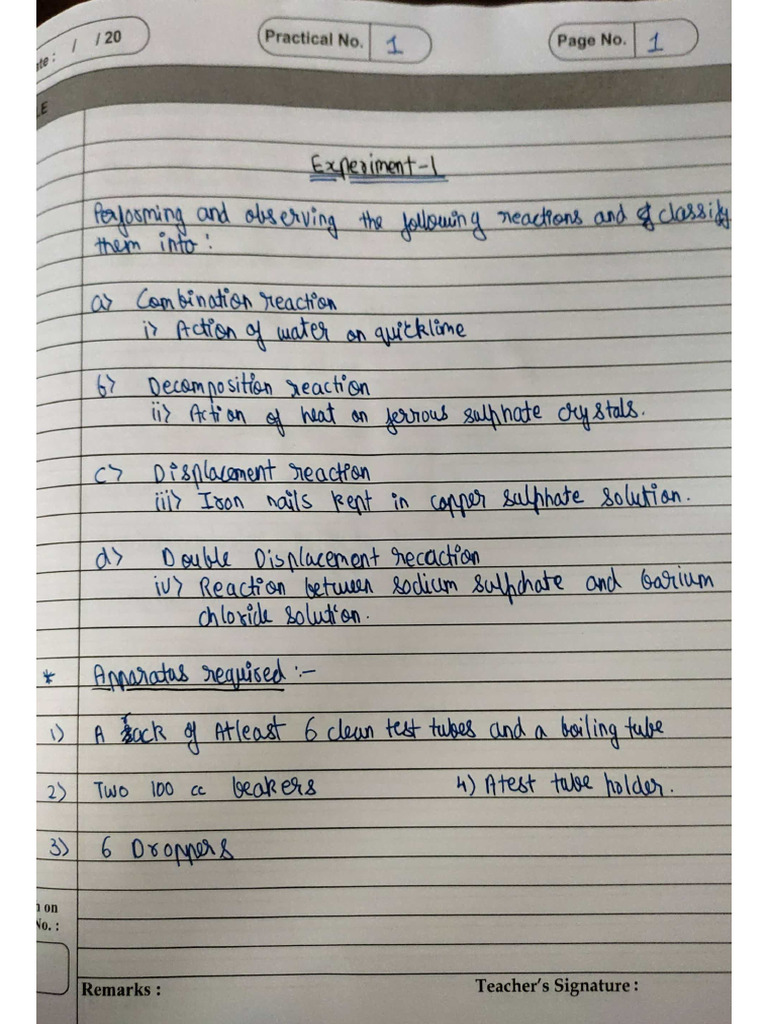 ate: / / 20 Practical No. 1 Page No. 1
LE
Experiment-1
Performing and observing the following reactions and classify
them into:
a) Combination reaction
i) Action of water on quicklime
b) Decomposition reaction
ii) Action of heat on ferrous sulphate crystals.
c) Displacement reaction
iii) Iron nails kept in copper sulphate solution.
d) Double Displacement recaction
iv) Reaction between sodium sulphate and barium
chloride solution.
* Apparatus required :-
1) A rack of Atleast 6 clean test tubes and a boiling tube
2) Two 100 cc beakers 4) A test tube holder.
3) 6 Droppers
n on
No. :
Remarks : Teacher's Signature :